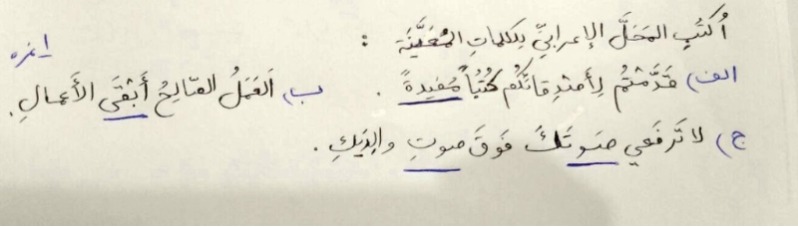 أُكتُبِ المَحَلَّ الإعرابيَّ لِلكلماتِ المُعَيَّنَة : ١نمره
الف) قَدَّمْتُم لِأَصْدِقائكُم كُتُباً مُفيدةً . ب) اَلعَمَلُ الصّالِحُ أَبْقَى الأَعمالِ.
ج) لا تَرفَعي صَوتَكَ فَوقَ صوتِ والِدَيكِ .